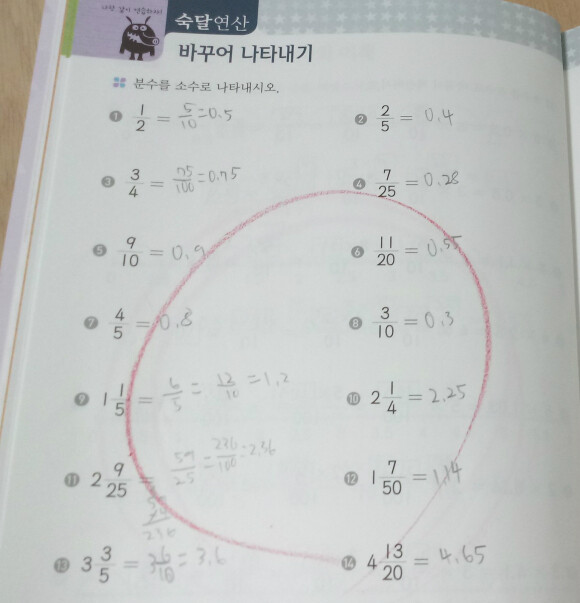 숙달연산
바꾸어 나타내기
분수를 소수로 나타내시오.
① 1/2 = 5/10 = 0.5
② 2/5 = 0.4
③ 3/4 = 75/100 = 0.75
④ 7/25 = 0.28
⑤ 9/10 = 0.9
⑥ 11/20 = 0.55
⑦ 4/5 = 0.8
⑧ 3/10 = 0.3
⑨ 1 1/5 = 6/5 = 12/10 = 1.2
⑩ 2 1/4 = 2.25
⑪ 2 9/25 = 59/25 = 236/100 = 2.36
⑫ 1 7/50 = 1.14
236
⑬ 3 3/5 = 3 6/10 = 3.6
⑭ 4 13/20 = 4.65